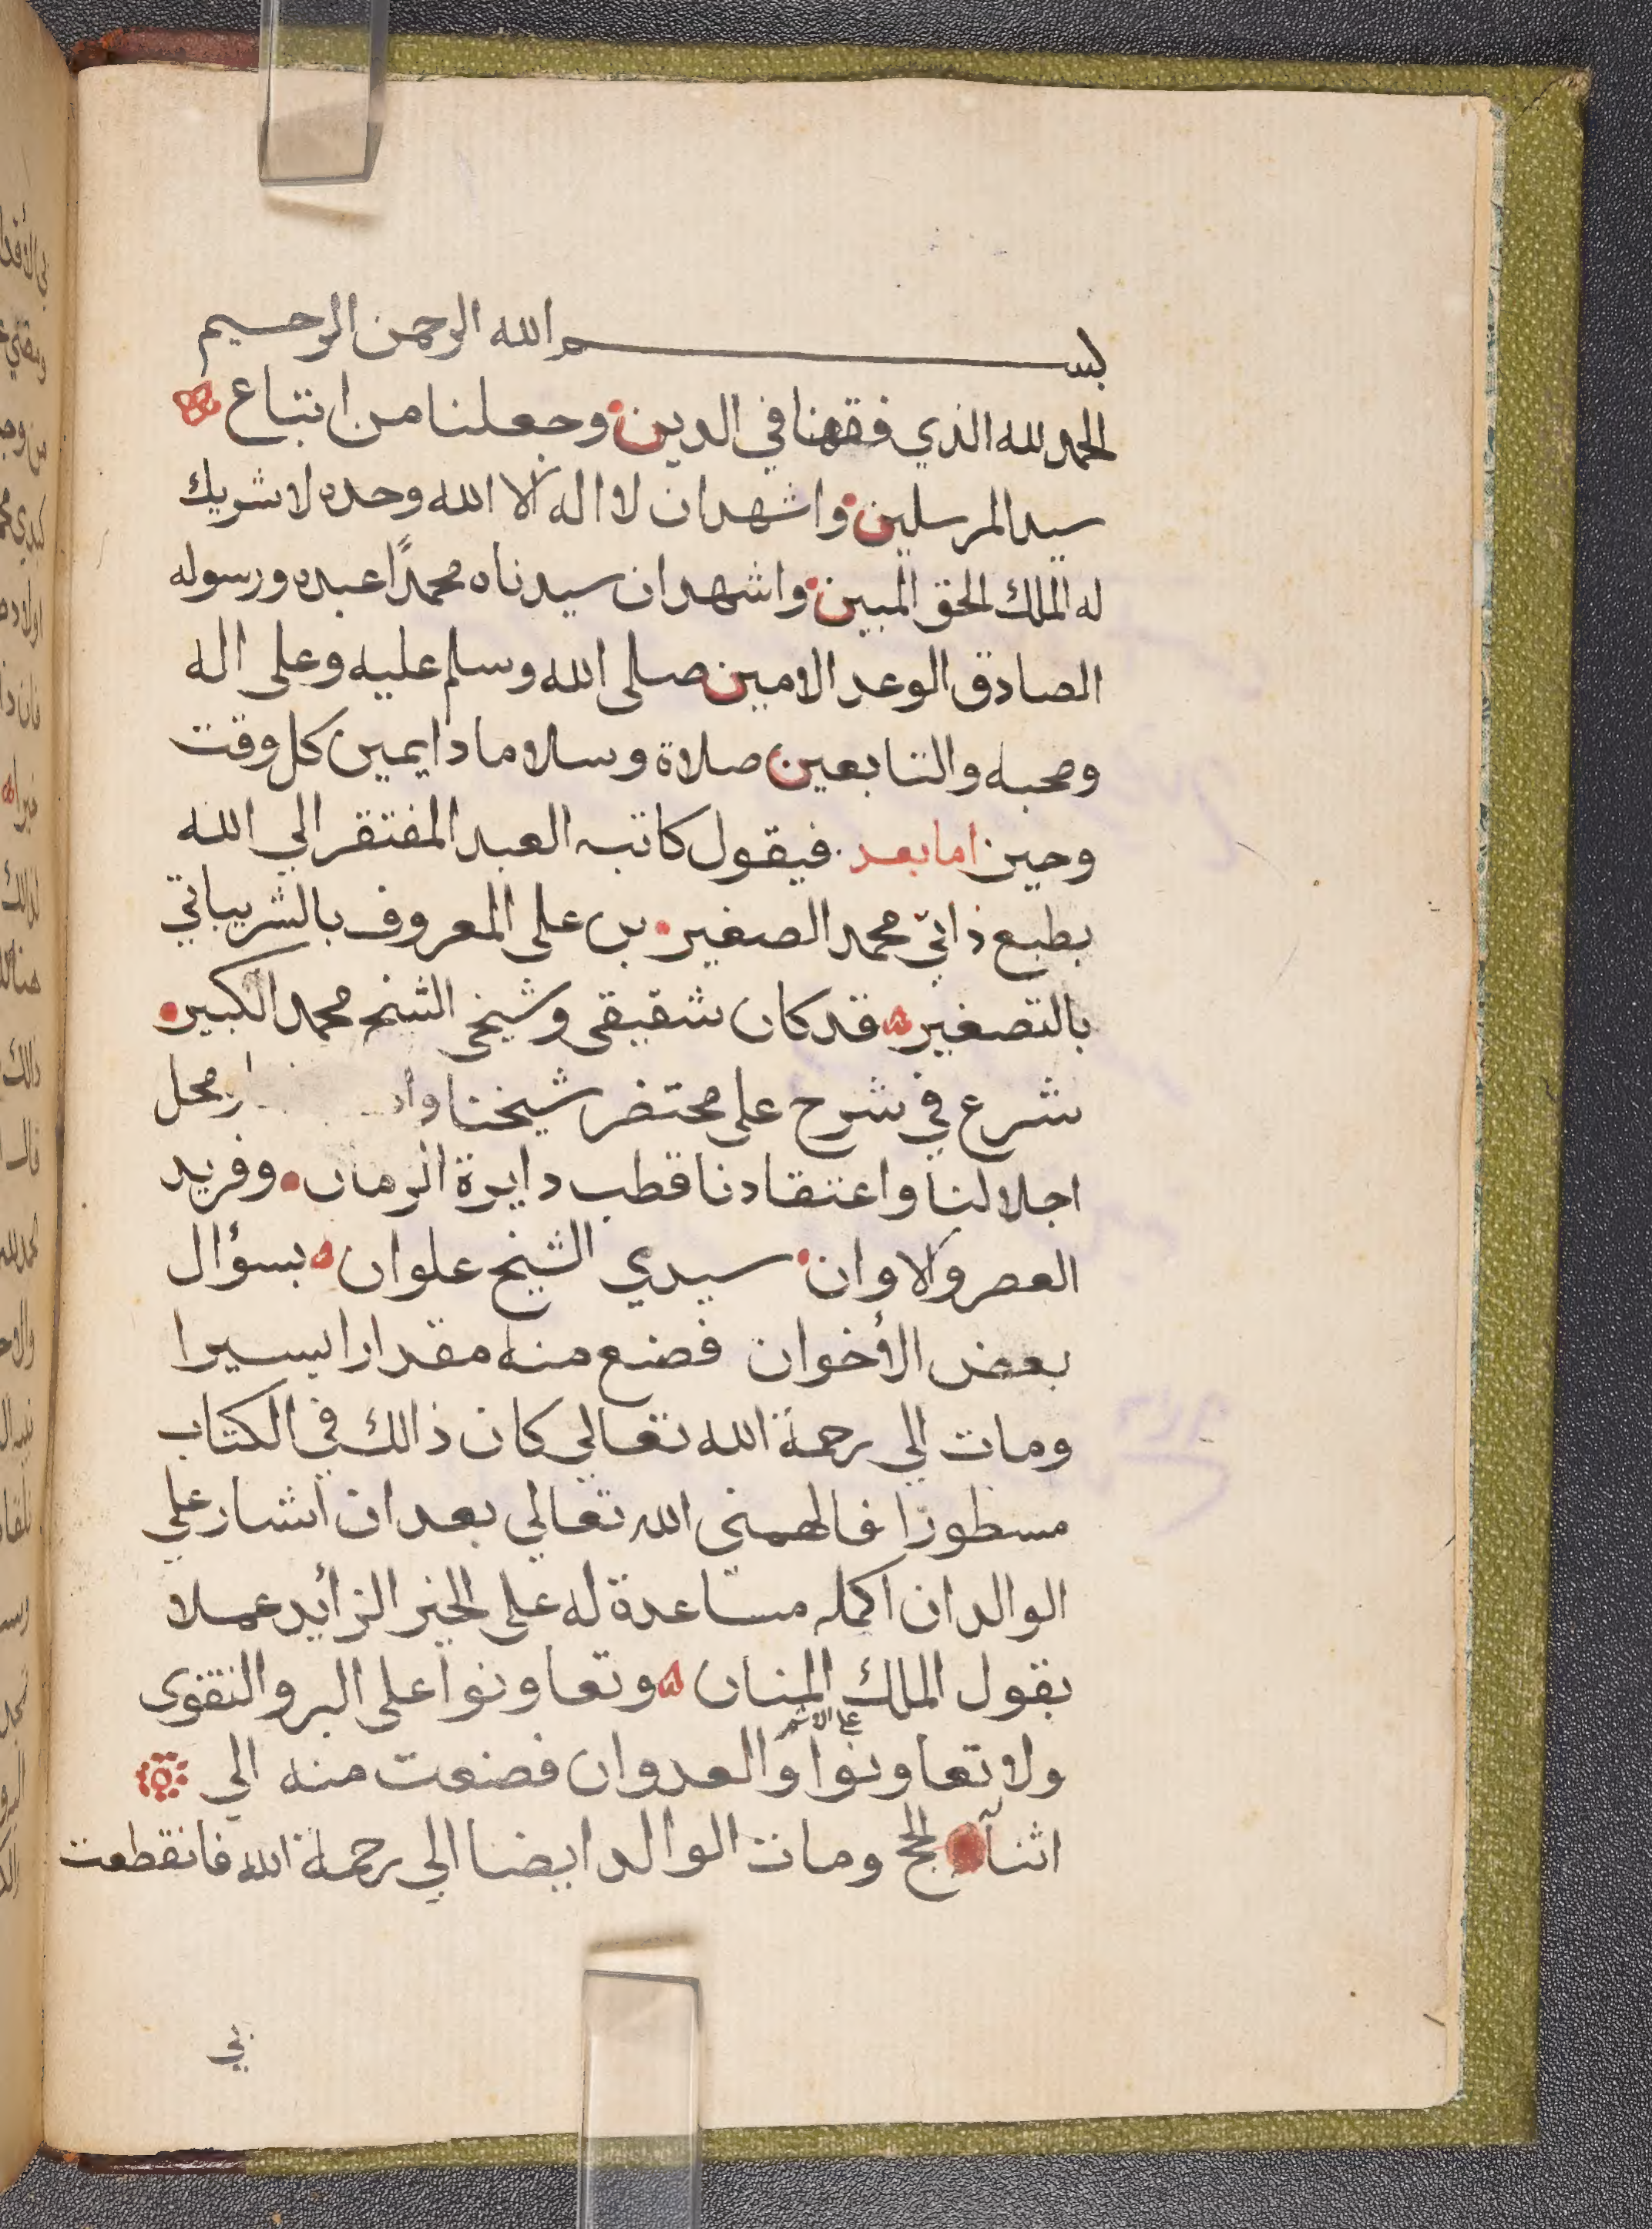 بسم الله الرحمن الرحيم
الحمد لله الذي فقهنا في الدين وجعلنا من اتباع
سيد المرسلين واشهد ان لا اله الا الله وحده لا شريك
له الملك الحق المبين واشهد ان سيدناه محمدًا عبده ورسوله
الصادق الوعد الامين صلى الله وسلم عليه وعلى اله
وصحبه والتابعين صلاة وسلاما دايمين كل وقت
وحين اما بعد فيقول كاتبه العبد المفتقر الي الله
بطبع ذاتيّ محمد الصغير بن على المعروف بالشريباتي
بالتصغير قد كان شقيقى وشيخى الشيخ محمد الكبير
شرع في شرح على مختصر شيخنا محل
اجلالنا واعتقادنا قطب دايرة الزمان وفريد
العصر والاوان سيدي الشيخ علوان بسؤال
بعض الأخوان فصنع منه مقدارا يسيرا
ومات الي رحمة الله تعالي كان ذالك في الكتاب
مسطورا فالهمني الله تعالي بعد ان اشار علي
الوالد ان اكمله مساعدة له على الخير الزأيد عملا
بقول الملك المنان وتعاونوا على البر والتقوى
ولا تعاونوا على الاثم والعدوان فصنعت منه الي
اثنآ الحج ومات الوالد ايضا الي رحمة الله فانقطعت
بي